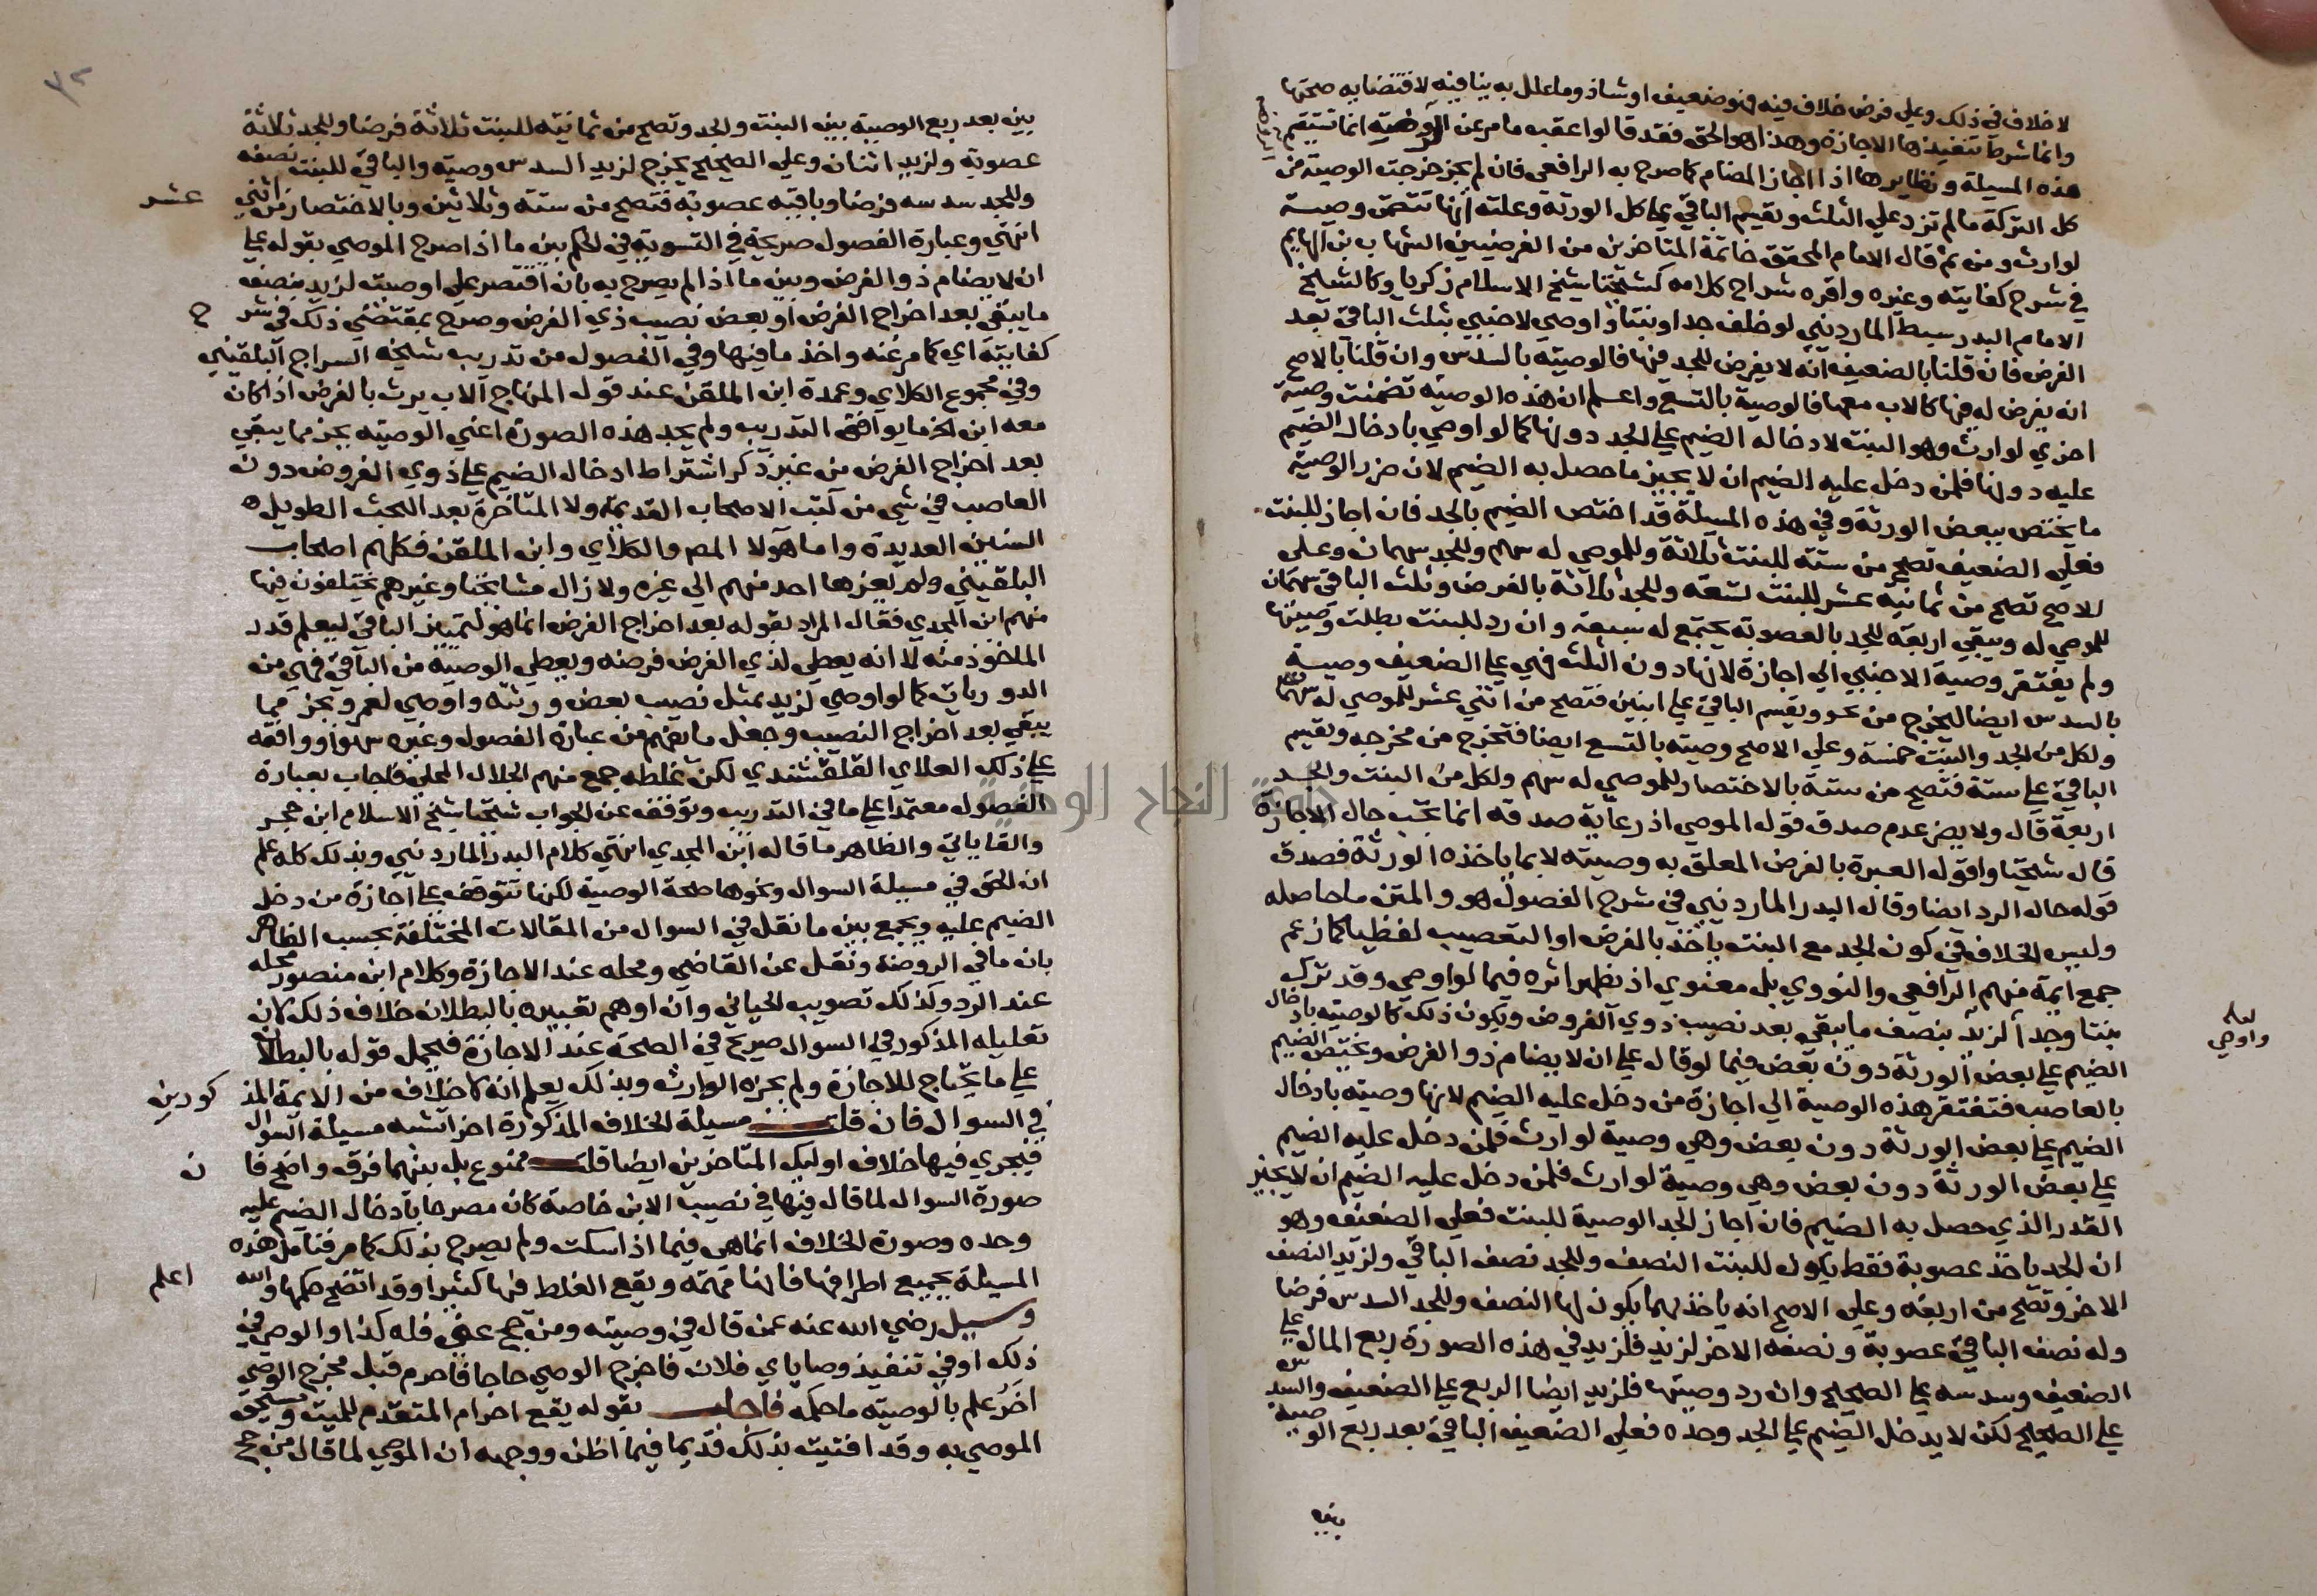 لا خلاف في ذلك وعلي فرض خلاف فيه فهو ضعيف او شاذ وما علل به ينافيه لاقتضايه صحتها
وانما شرط تنفيذها الاجازة وهذا هو الحق فقد قالوا عقب ما مر عن الروضة انما تستقيم
هذه المسيلة ونظايرها اذا اجاز المضام كما صرح به الرافعي فان لم يجز خرجت الوصية من
كل التركة مالم تزد علي الثلث ويقسم الباقي علي كل الورثة وعلته انها تتضمن وصية
لوارث ومن ثم قال الامام المحقق خاتمة المتاخرين من الفرضيين الشهاب بن الهايم
في شرح كفايته وغيره واقره شراح كلامه كشيخنا شيخ الاسلام زكريا وكالشيخ
الامام البدر سبط المارديني لو خلف جدا وبنتا واوصي لاجنبي بثلث الباقي بعد
الفرض فان قلنا بالضعيف انه لا يفرض للجد فيها فالوصية بالسدس وان قلنا بالاصح
انه يفرض له فيها كالاب معها فالوصية بالتسع واعلم ان هذه الوصية تضمنت وصية
اخري لوارث وهو البنت لادخاله الضيم علي الجد دونها كما لو اوصي بادخال الضيم
عليه دونها فلمن دخل عليه الضيم ان لا يجيز ما حصل به الضيم لان ضرر الوصية
ما يختص ببعض الورثة وفي هذه المسيلة قد اختص الضيم بالجد فان اجاز للبنت
فعلي الضعيف تصح من ستة للبنت ثلاثة وللموصي له سهم وللجد سهمان وعلي
الاصح تصح من ثمانية عشر للبنت تسعة وللجد ثلاثة بالفرض وثلث الباقي سهمان
للموصي له ويبقي اربعة للجد بالعصوبة يجتمع له سبعة وان رد للبنت بطلت وصيتها
ولم يفتقر وصية الاجنبي الي اجازة لانها دون الثلث فهي علي الضعيف وصية
بالسدس ايضا ليخرج من مخرجه ويقسم الباقي علي اثنين فتصح من اثني عشر للموصي له سهمان
ولكل من الجد والبنت خمسة وعلي الاصح وصيته بالتسع ايضا فتخرج من مخرجه ويقسم
الباقي علي ستة فتصح من ستة بالاختصار للموصي له سهم ولكل من البنت والجد
اربعة قال ولا يضر عدم صدق قوله الموصي اذ رعاية صدقه انما تجب حال الاجازة
قال شيخنا واقوله العبرة بالفرض المعلق به وصيته لا بما ياخذه الورثة فصدق
قوله حال الرد ايضا وقال البدر المارديني في شرح الفصول هو والمتن ما حاصله
وليس الخلاف في كون الجد مع البنت ياخذ بالفرض او التعصيب لفظيا كما زعم
جمع ايمة منهم الرافعي والنووي بل معنوي اذ يظهر اثره فيما لو اوصي وقد ترك
بنتا وجدا لزيد بنصف ما يبقي بعد نصيب ذوي الفروض ويكون ذلك كالوصية بادخال
الضيم علي بعض الورثة دون بعض فيما لو قال علي ان لا يضام ذو الفرض ويختص الضيم
بالعاصب فتفتقر هذه الوصية الي اجازة من دخل عليه الضيم لانها وصية بادخال
الضيم علي بعض الورثة دون بعض وهي وصية لوارث فلمن دخل عليه الضيم
علي بعض الورثة دون بعض وهي وصية لوارث فلمن دخل عليه الضيم ان لا يجيز
القدر الذي حصل به الضيم فان اجاز الجد الوصية للبنت فعلي الضعيف وهو
ان الجد ياخذ عصوبة فقط يكون للبنت النصف وللجد نصف الباقي ولزيد النصف
الاخر وتصح من اربعة وعلي الاصح انه ياخذ بهما يكون لها النصف وللجد السدس فرضا
وله نصف الباقي عصوبة ونصفه الاخر لزيد فلزيد في هذه الصورة ربع المال علي
الضعيف وسدسه علي الصحيح وان رد وصيتها فلزيد ايضا الربع علي الضعيف والسدس
علي الصحيح لكن لا يدخل الضيم علي الجد وحده فعلي الضعيف الباقي بعد ربع الوصية
لعله
واوصي
بين بعد ربع الوصية بين البنت والجد وتصح من ثمانية للبنت ثلاثة فرضا وللجد ثلاثة
عصوبة ولزيد اثنان وعلي الصحيح يخرج لزيد السدس وصية والباقي للبنت نصفه
وللجد سدسه فرضا وباقيه عصوبة فتصح من ستة وثلاثين وبالاختصار من اثني عشر
انتهي وعبارة الفصول صريحة في التسوية في الحكم بين ما اذا صرح الموصي بقوله علي
ان لا يضام ذو الفرض وبين ما اذا لم يصرح به بان اقتصر علي اوصيت لزيد بنصف
ما يبقي بعد اخراج الفرض او بعض نصيب ذي الفرض وصرح بمقتضي ذلك في شرح
كفايته اي كما مر عنه واخذ ما فيها وفي الفصول من تدريب شيخه السراج البلقيني
وفي مجموع الكلاي وعمدة ابن الملقن عند قول المنهاج الاب يرث بالفرض اذا كان
معه ابن الخ ما يوافق التدريب ولم يجد هذه الصورة اعني الوصية بجزء مما يبقي
بعد اخراج الفرض من غير ذكر اشتراط ادخال الضيم علي ذوي الفروض دون
العاصب في شي من كتب الاصحاب القديمة ولا المتاخرة بعد البحث الطويل
السنين العديدة واما هولا المصـ والكلاي وابن الملقن فكلهم اصحاب
البلقيني ولم يعزها احد منهم الي غيره ولا زال مشايخنا وغيرهم يختلفون فيها
منهم ابن المجدي فقال المراد بقوله بعد اخراج الفرض انما هو لتمييز الباقي ليعلم قدر
الماخوذ منه لا انه يعطي لذي الفرض فرضه ويعطي الوصية من الباقي فهي من
الدوريات كما لو اوصي لزيد بمثل نصيب بعض ورثته واوصي لعمرو بجزء مما
يبقي بعد اخراج النصيب وجعل ما يفهم من عبارة الفصول وغيره سهوا ووافقه
علي ذلك العلاي القلقشندي لكن غلطه جمع منهم الجلال المحلي فاجاب بعبارة
الفصول معتمدا علي ما في التدريب وتوقف عن الجواب شيخنا شيخ الاسلام ابن حجر
والقاياتي والظاهر ما قاله ابن المجدي انتهي كلام البدر المارديني وبذلك كله علم
ان الحق في مسيلة السوال ونحوها صحة الوصية لكنها تتوقف علي اجازة من دخل
الضيم عليه ويجمع بين ما نقل في السوال من المقالات المختلفة بحسب الظاهر
بان ما في الروضة ونقل عن القاضي ومحله عند الاجازة وكلام ابن منصور محله
عند الرد وكذلك تصويب الحياني وان اوهم تعبيره بالبطلان خلاف ذلك لان
تعليله المذكور في السوال صريح في الصحة عند الاجازة فيحمل قوله بالبطلان
علي ما يحتاج للاجازة ولم يجزه الوارث وبذلك يعلم انه لا خلاف من الايمة المذكورين
في السوال فان قلت مسيلة الخلاف المذكورة اخرا تشبه مسيلة السوال
فيجري فيها خلاف اوليك المتاخرين ايضا قلت ممنوع بل بينهما فرق واضح فان
صورة السوال لما قال فيها في نصيب الابن خاصة كان مصرحا بادخال الضيم عليه
وحده وصورة الخلاف انما هي فيما اذا سكت ولم يصرح بذلك كما مر فتامل هذه
المسيلة بجميع اطرافها فانها مهمة ويقع الغلط فيها كثيرا وقد اتضح حكمها والله اعلم
وسيل رضي الله عنه عمن قال في وصيته ومن حج عني فله كذا والوصي في
ذلك او في تنفيذ وصاياي فلان فاخرج الوصي حاجا فاحرم قبل مخرج الوصي
اخر علم بالوصية ما حكمه فاجاب بقوله يقع احرام المتقدم للميت ويستحق
الموصي به وقد افتيت بذلك قديما فيما اظن ووجهه ان الموصي لما قال من حج
جامعة النجاح الوطنية